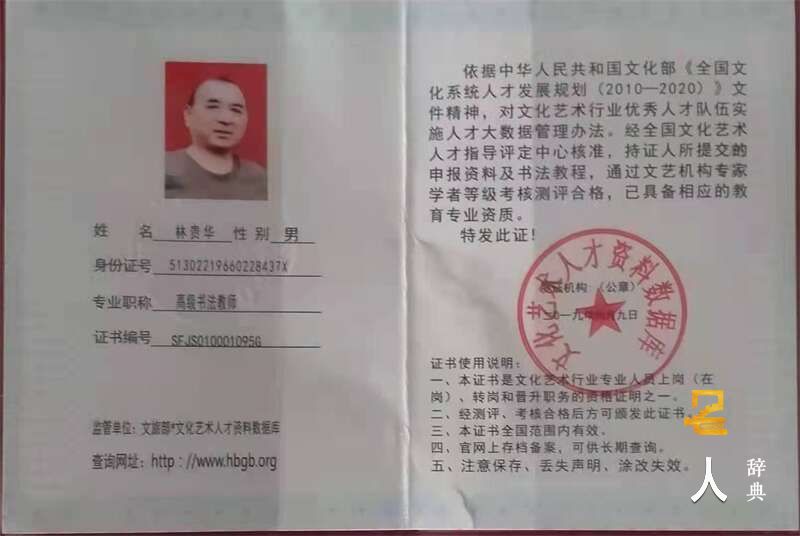 姓 名 林贵华 性别 男
身份证号 51302219660228437X
专业职称 高级书法教师
证书编号 SFJS010001095G
监管单位：文旅部*文化艺术人才资料数据库
查询网址：http://www.hbgb.org
依据中华人民共和国文化部《全国文
化系统人才发展规划（2010—2020）》文
件精神，对文化艺术行业优秀人才队伍实
施人才大数据管理办法。经全国文化艺术
人才指导评定中心核准，持证人所提交的
申报资料及书法教程，通过文艺机构专家
学者等级考核测评合格，已具备相应的教
育专业资质。
特发此证！
文化艺术人才资料数据库
机构（公章）
二〇一九年 月九日
证书使用说明：
一、本证书是文化艺术行业专业人员上岗（在
岗）、转岗和晋升职务的资格证明之一。
二、经测评、考核合格后方可颁发此证书。
三、本证书全国范围内有效。
四、官网上存档备案，可供长期查询。
五、注意保存、丢失声明、涂改失效。
人 辞典